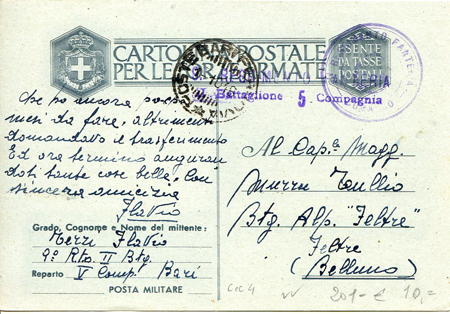 CARTOLINA POSTALE
PER LE FORZE ARMATE
ESENTE
DA TASSE
POSTALI
Battaglione 5 Compagnia
Che ho ancora pochi
mesi da fare, altrimenti
domandavo il trasferimento
Ed ora termino auguran
doti tante cose belle. Con
sincera amicizia
Flavio
Grado, Cognome e Nome del mittente:
Terzi Flavio
9° Rto. II Btg.
Reparto V Comp. Bari
POSTA MILITARE
Al Cap. Magg.
Tullio
Btg. Alp. "Feltre"
Feltre
(Belluno)
201- € 10,=